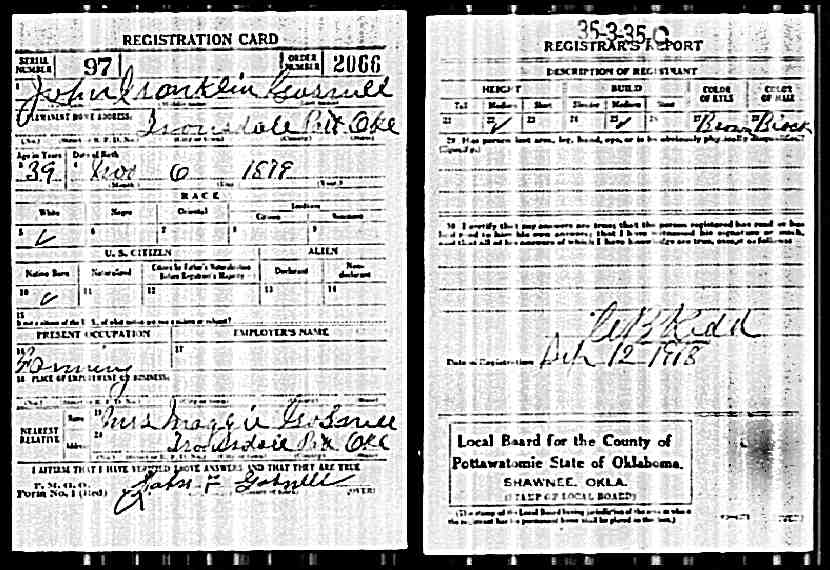 REGISTRATION CARD
SERIAL NUMBER 97 ORDER NUMBER 2066
1 John Franklin Gosnell
PERMANENT HOME ADDRESS:
Trousdale Pott Okla
Age in Years Date of Birth
39 Nov 6 1878
(Month) (Day) (Year)
RACE
White Negro Oriental Indian
Citizen Noncitizen
5 ✓ 6 7 8 9
U. S. CITIZEN ALIEN
Native Born Naturalized Citizen by Father's Naturalization Before Registrant's Majority Declarant Non-declarant
10 ✓ 11 12 13 14
15
If not a citizen of the U. S., of what nation are you a citizen or subject?
PRESENT OCCUPATION EMPLOYER'S NAME
16 Farming 17
18 PLACE OF EMPLOYMENT OR BUSINESS:
NEAREST RELATIVE Name 19 Mrs Maggie Gosnell
Address 20 Trousdale Pott Okla
I AFFIRM THAT I HAVE VERIFIED ABOVE ANSWERS AND THAT THEY ARE TRUE
P. M. G. O.
Form No. 1 (Red) John F Gosnell (OVER)
35-3-35 C
REGISTRAR'S REPORT
DESCRIPTION OF REGISTRANT
HEIGHT BUILD COLOR OF EYES COLOR OF HAIR
Tall Medium Short Slender Medium Stout
21 22 ✓ 23 24 25 ✓ 26 27 Brown 28 Black
29 Has person lost arm, leg, hand, eye, or is he obviously physically disqualified?
(Specify.)
30 I certify that my answers are true; that the person registered has read or has
had read to him his own answers; that I have witnessed his signature or mark,
and that all of his answers of which I have knowledge are true, except as follows:
Kidd
Date of Registration Sep 12 1918
Local Board for the County of
Pottawatomie State of Oklahoma.
SHAWNEE, OKLA.
(STAMP OF LOCAL BOARD)
(The stamp of the Local Board having jurisdiction of the area in which
the registrant has his permanent home shall be placed in this box.)